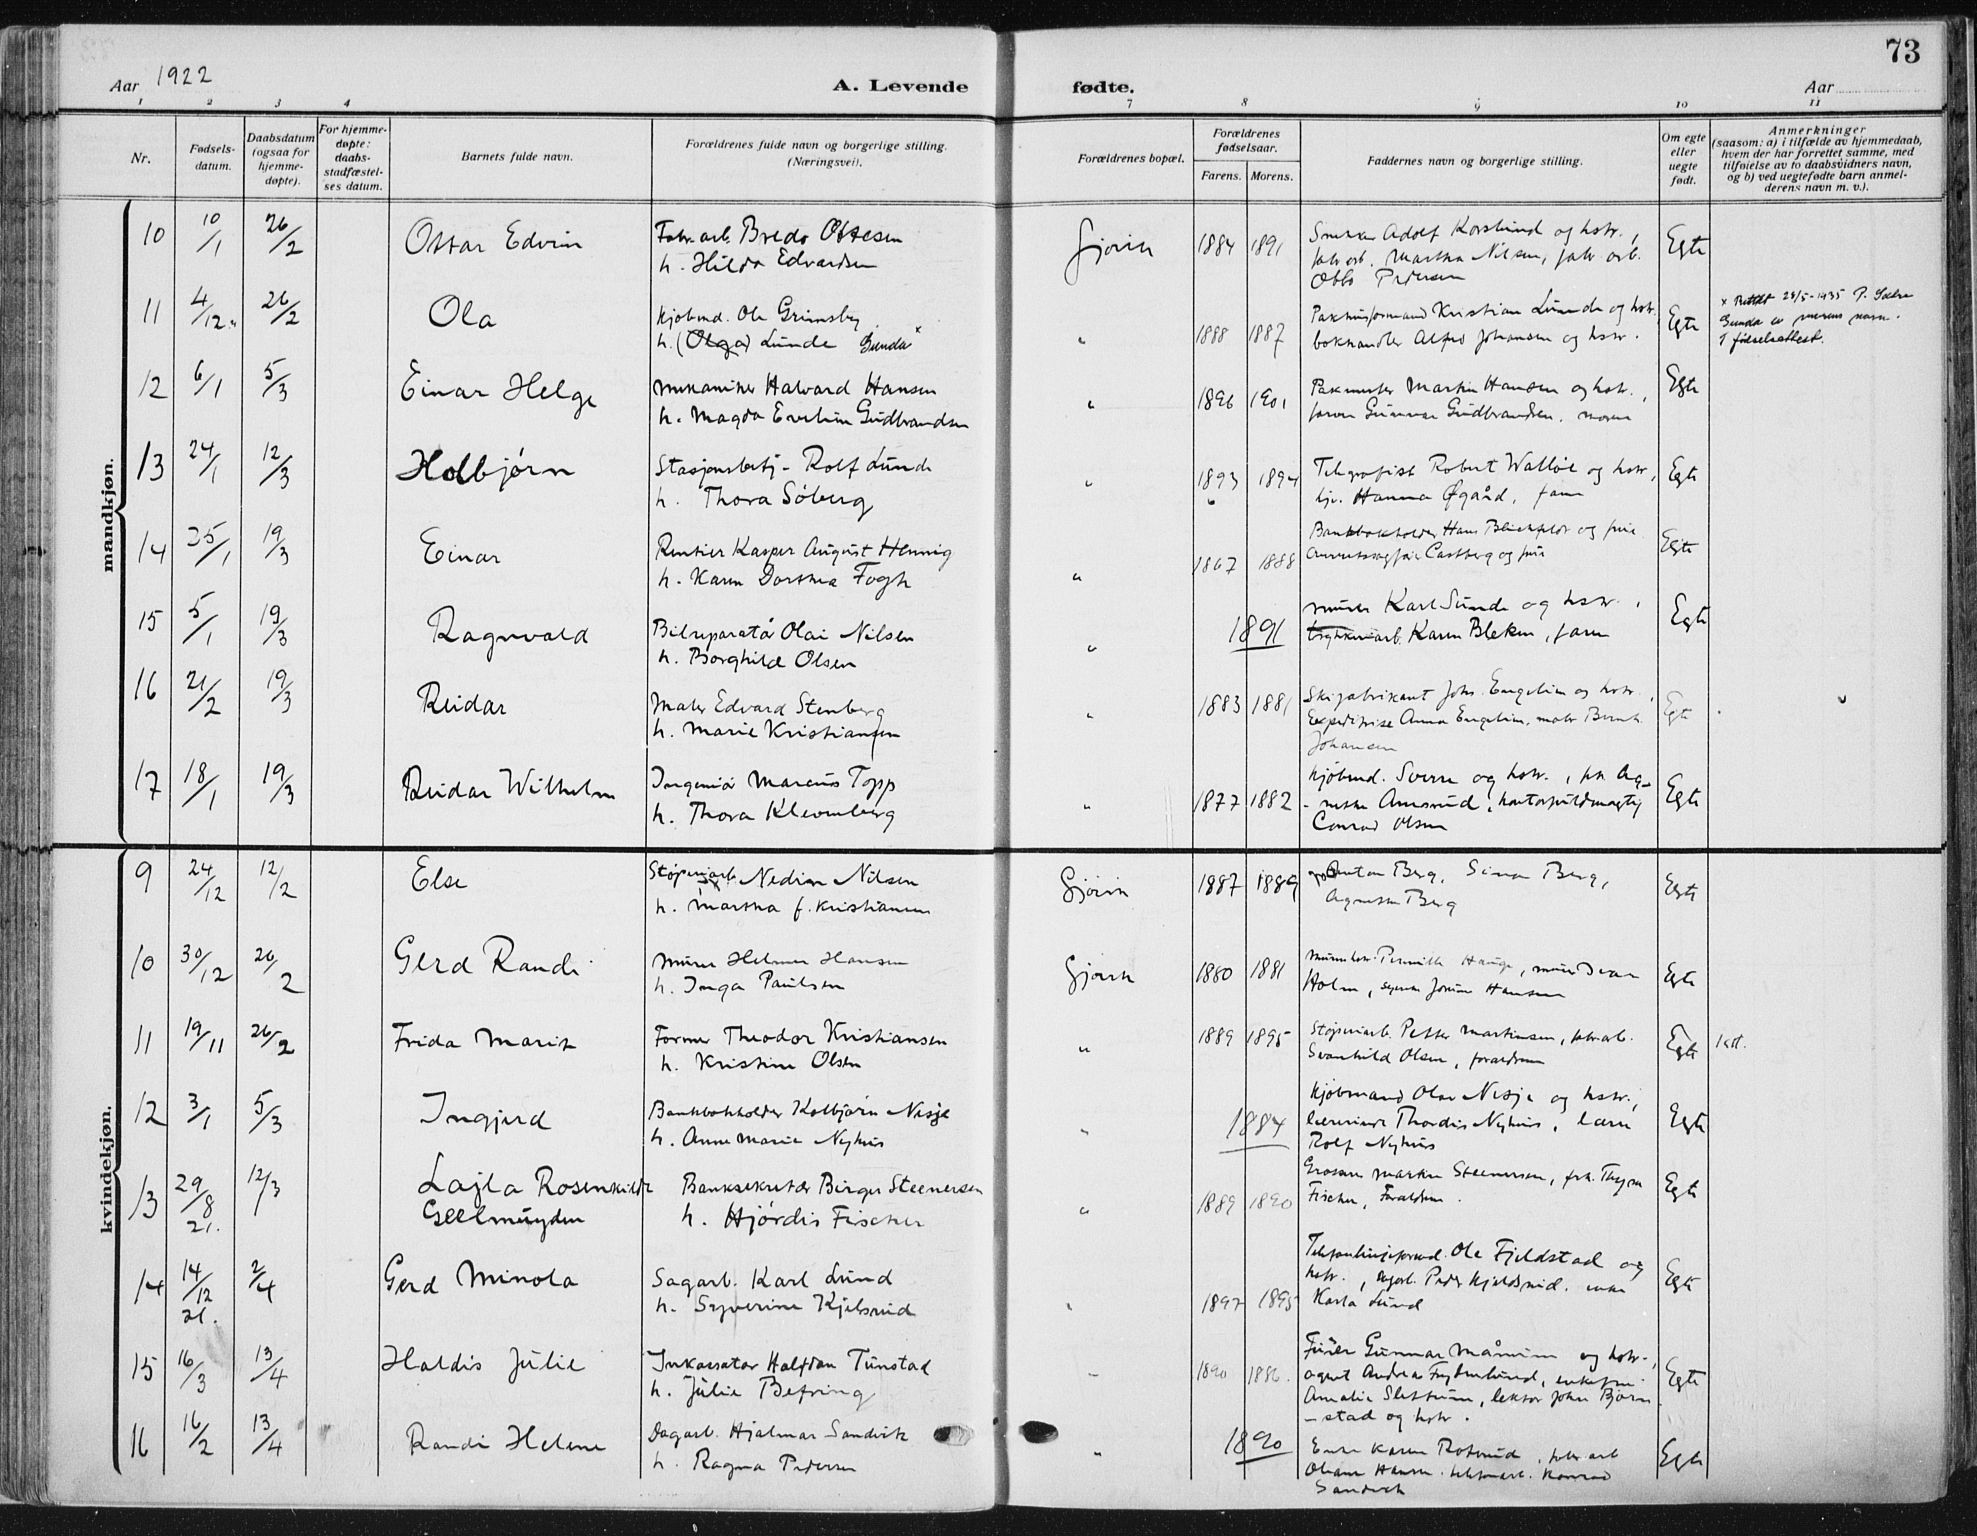 73
Aar 1922
A. Levende
fødte.
Aar
1 2 3 4 7 8 9 10 11
Nr.
Fødsels-
datum.
Daabsdatum
(ogsaa for
hjemme-
døpte).
For hjemme-
døpte:
daabs-
stadfæstel-
ses datum.
Barnets fulde navn.
Forældrenes fulde navn og borgerlige stilling.
(Næringsvei).
Forældrenes bopæl.
Forældrenes
fødselsaar.
Farens. Morens.
Faddernes navn og borgerlige stilling.
Om egte
eller
uegte
født.
Anmerkninger
(saasom: a) i tilfælde av hjemmedaab,
hvem der har forrettet samme, med
tilføielse av to daabsvidners navn,
og b) ved uegtefødte barn anmel-
derens navn m. v.).
mandkjøn.
10 10/1 26/2 Ottar Edvin Fabr.arb. Bredo Ottesen Gjøvik 1884 1891 Snekker Adolf Korslund og hstr., Egte
h. Hilda Edvardsen fabr.arb. Martha Nilsen, fabr.arb.
Otto Pedersen
11 4/12 26/2 Ola Kjøbmd. Ole Grimsby " 1888 1887 Pakhusformand Kristian Lunde og hstr. Egte
h. (Olga) Lunde Gunda x bokhandler Alfred Johansen og hstr.
x Rettet 28/5-1935 P. Sælre
Gunda er morens navn.
I fødselsattest.
12 6/1 5/3 Einar Helge Mekaniker Halvard Hansen " 1896 1901 Pakmester Martin Hansen og hstr., Egte
h. Magda Eveline Gudbrandsen faren Gunnar Gudbrandsen, moren
13 24/1 12/3 Kolbjørn Stasjonsbetj. Rolf Lunde " 1893 1894 Telegrafist Robert Walløe og hstr., Egte
h. Thora Söberg Hanna Øgård, faren
14 25/1 19/3 Einar Rentier Kasper August Hennig " 1867 1888 Bankbokholder Hans og frue Egte
h. Karen Dorthea Fogh Castberg og frue
15 5/1 19/3 Ragnvald Bilreparatör Olai Nilsen " 1891 murer Karl Sunde og hstr., Egte
h. Borghild Olsen Karen Bleken, faren
16 21/2 19/3 Reidar Maler Edvard Stenberg " 1883 1881 Skifabrikant Johs. Engelien og hstr., Egte
h. Marie Kristiansen Expeditrise Anna Engelien, maler Bernh.
Johansen
17 18/1 19/3 Reidar Wilhelm Ingeniör Marcus Topp " 1877 1882 Kjöbmd. Sverre og hstr., frk. Ag-
h. Thora Klevenberg nethe Amsrud, kontorfuldmægtig Egte
Conrad Olsen
kvindekjøn.
9 24/12 12/2 Else Støperiarb. Nedim Nilsen Gjövik 1887 1889 Anton Berg, Sina Berg, Egte
h. Martha f. Kristiansen Agnethe Berg
10 30/12 26/2 Gerd Randi Murer Helmer Hansen Gjövik 1880 1881 Pernille Hauge, murer Ivar Egte
h. Inga Paulsen Holm, Hansen
11 19/11 26/2 Frida Marie Former Theodor Kristiansen " 1889 1895 Støperiarb. Petter Martinsen, fabr.arb. Egte
h. Kristine Olsen Svanhild Olsen, forældrene
12 3/1 5/3 Ingjerd Bankbokholder Kolbjørn Nesje " 1884 Kjøbmand Olav Nesje og hstr., Egte
h. Anne Marie Nyhus lærerinde Thordis Nyhus, lærer
Rolf Nyhus
13 29/8 21. 12/3 Lajla Rosenkilde Banksekretær Birger Steenersen " 1889 1890 Grosserer Martin Steenersen, frk. Thyra Egte
Geelmuyden h. Hjördis Fischer Fischer, Forældrene.
14 14/12 21. 2/4 Gerd Minola Sagarb. Karl Lund 1897 1895 Ole Fjeldstad og Egte
h. Syverine Kjelsrud hstr., sagarb. Peder Kjeldsrud, enke
Karla Lund
15 16/3 13/4 Haldis Julie Inkassator Halfdan Tunstad 1890 1886. Gunnar og hstr., Egte
h. Julie Befring agent Andreas
Amalie Slettum, lektor John Bjørn-
stad og hstr.
16 16/2 13/4 Randi Helene Dagarb. Hjalmar Sandvik " 1890 Enke Karen Roterud, fabr.arb. Egte
h. Ragna Pedersen Hansen, Konrad
Sandvik